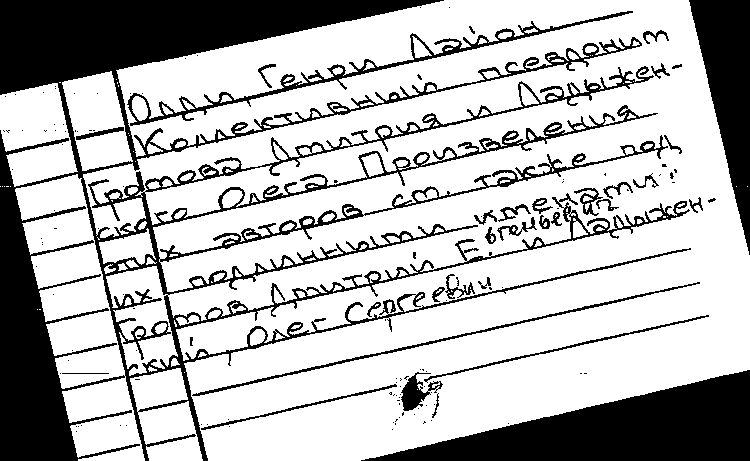 Олди, Генри Лайон.
Коллективный псевдоним
Громова Дмитрия и Ладыжен-
ского Олега. Произведения
этих авторов см. также под
их подлинными именами:
Громов, Дмитрий Евгеньевич и Ладыжен-
ский, Олег Сергеевич